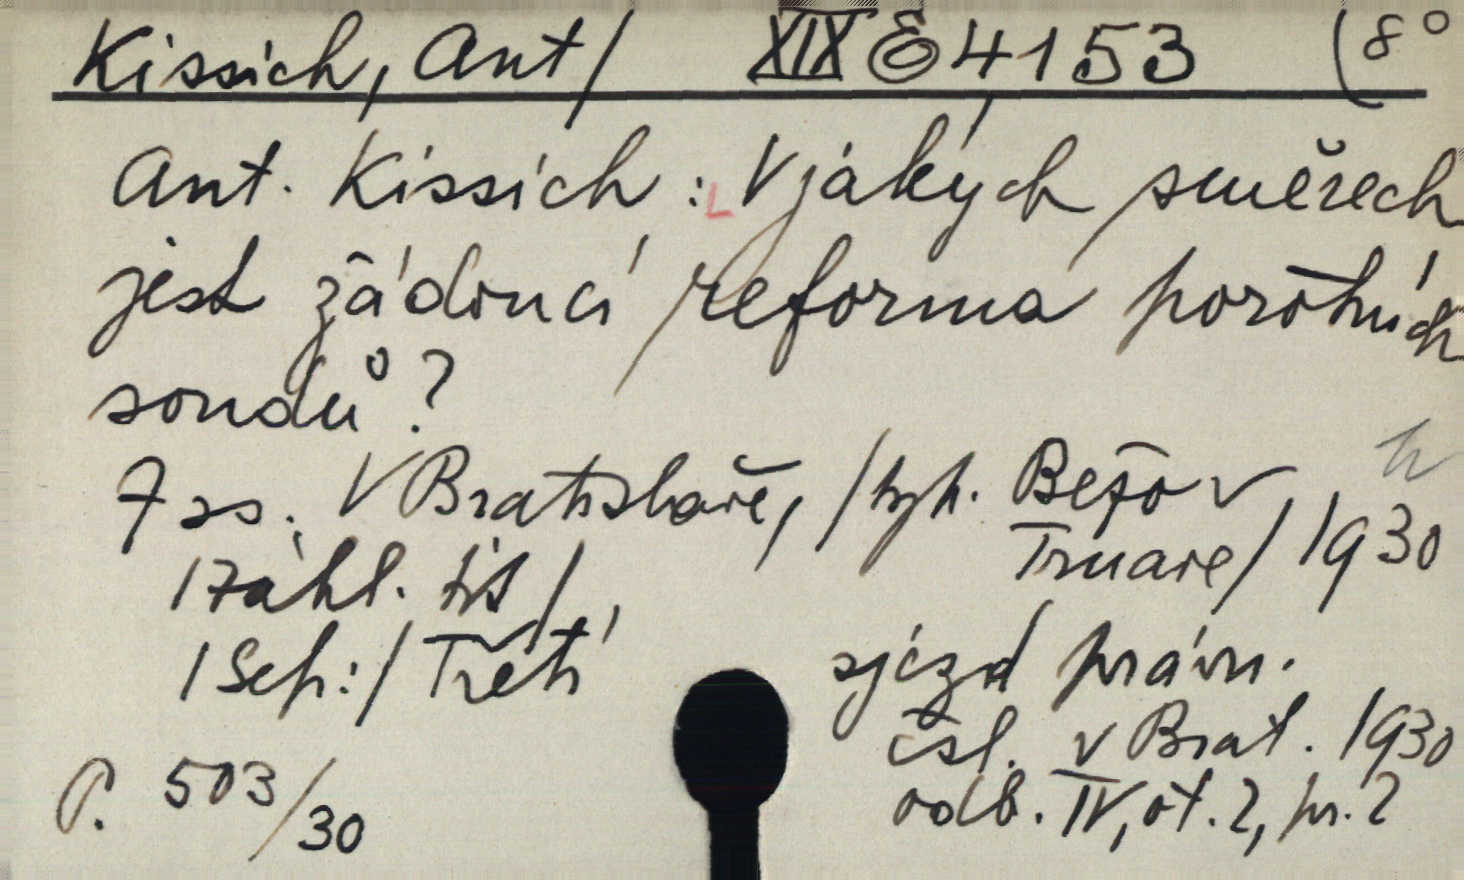 Kissich, Ant/ XIX E 4153 (8°
Ant. Kissich : V jakých směrech
jest žádoucí reforma porotních
soudů?
7 ss. V Bratislavě, /typ. Bežo v
Trnave/, 1930
/záhl. tit/
/Sep:/ Třetí sjezd právn.
čsl. v Brat. 1930
odb. IV, ot. 2, pr. 2
P. 503/30